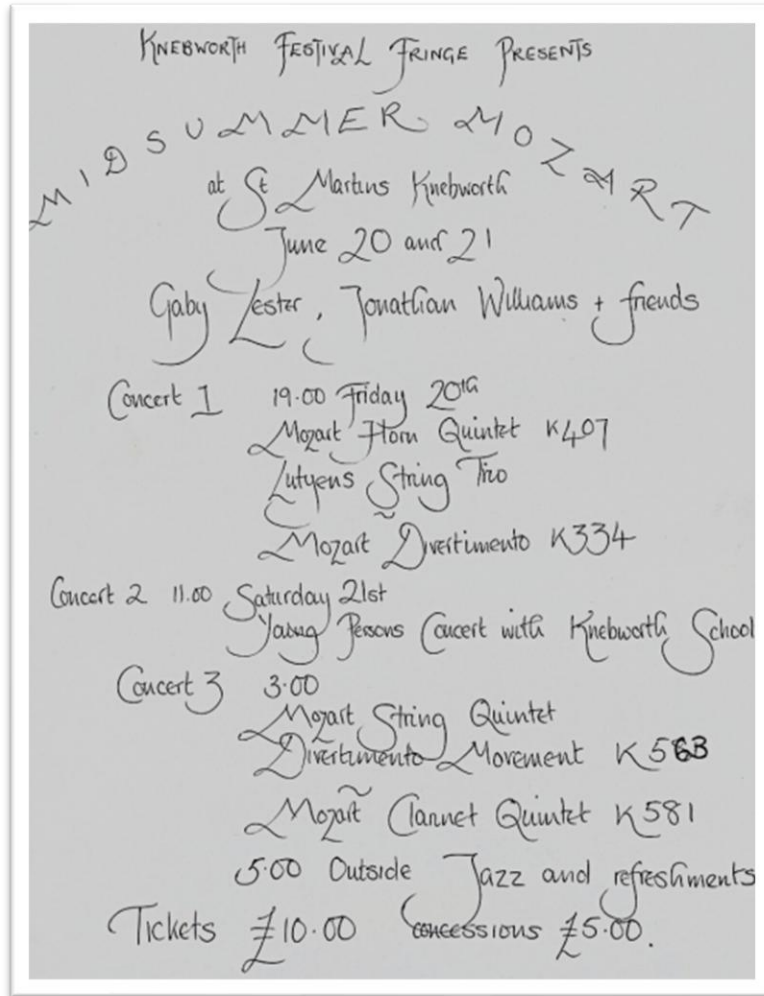 KNEBWORTH FESTIVAL FRINGE PRESENTS
MIDSUMMER MOZART
at St Martins Knebworth
June 20 and 21
Gaby Lester, Jonathan Williams + friends
Concert 1 19.00 Friday 20th
Mozart Horn Quintet K407
Lutyens String Trio
~
Mozart Divertimento K334
Concert 2 11.00 Saturday 21st
Young Persons Concert with Knebworth School
Concert 3 3.00
Mozart String Quintet
Divertimento Movement K563
~
Mozart Clarinet Quintet K581
5.00 Outside Jazz and refreshments
Tickets £10.00 concessions £5.00.